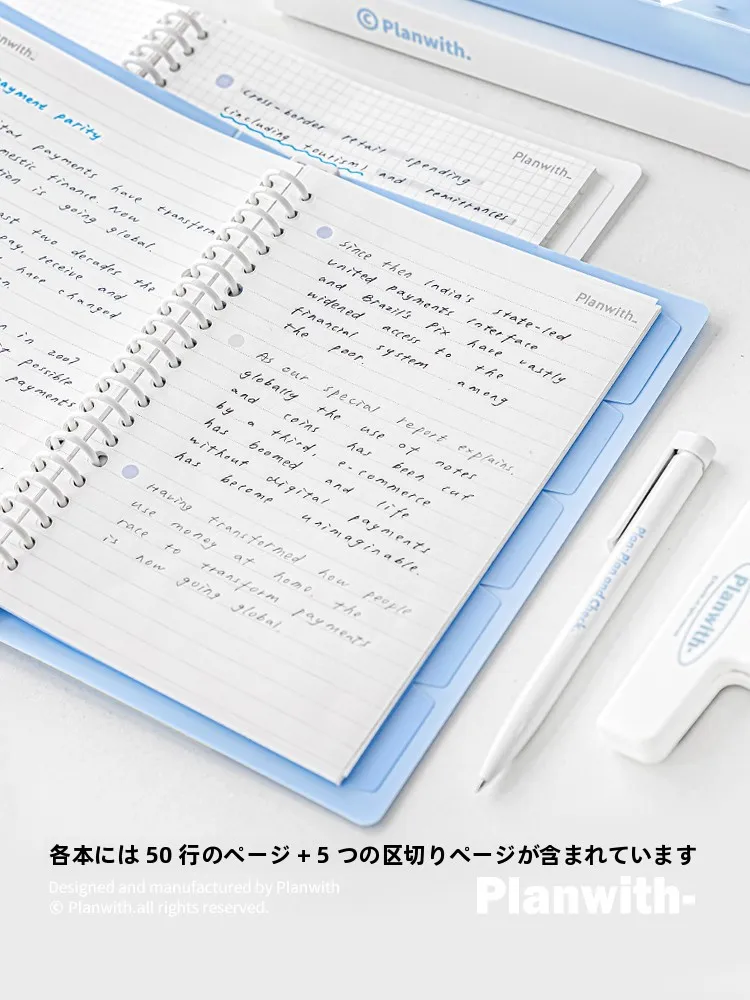 © Planwith.
Cross-border retail spending
(including tourism) and remittances
Planwith_
payment parity
payments have transform
finance. Now
is going global.
two decades the
pay, receive and
have changed
in 2007
possible
payments
Planwith_
Since then India's state-led
united payments interface
and Brazil's Pix have vastly
widened access to the
financial system among
the poor.
As our special report explains.
globally the use of notes
and coins has been cut
by a third, e-commerce
has boomed and life
without digital payments
has become unimaginable.
Having transformed how people
use money at home, the
race to transform payments
is now going global.
Plan·Plan and Check.
Planwith-
各本には 50 行のページ + 5 つの区切りページが含まれています
Designed and manufactured by Planwith
© Planwith.all rights reserved.
Planwith-